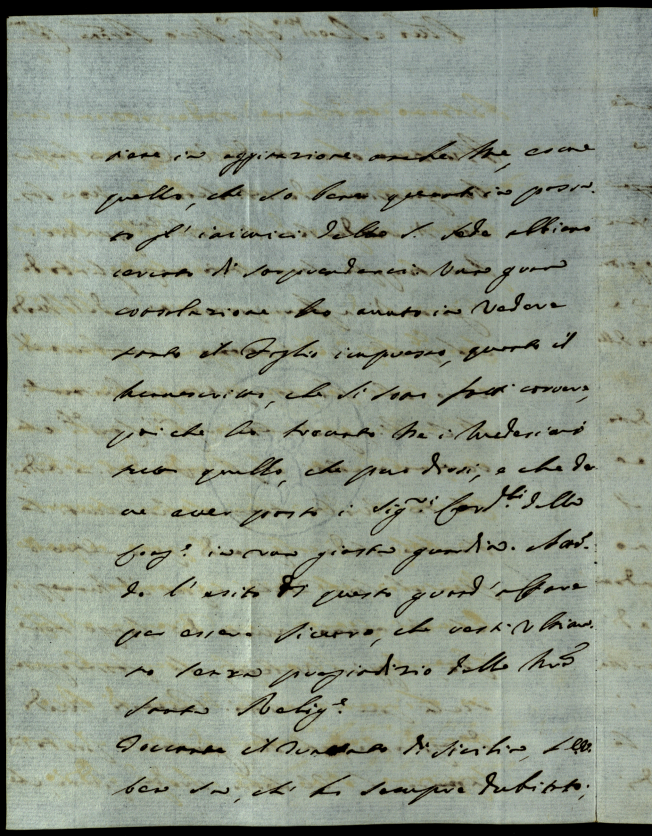 tiene in appirazione anche me, come
quello, che so bene quanti in passa-
to gl'inimici della S. Sede abbiano
cercato di sorprenderci. Una gran
consolazione ho avuto in vedere
tanto il Foglio impresso, quanto il
manoscritto, che si sono fatti correre,
poiche ho trovato ne i medesimi
tutto quello, che può dirsi, e che de-
ve aver posto i Sig.ri Card.li della
Cong.e in una giusta guardia.
do l'esito di questo grand'affare
per essere sicuro, che resti ultima-
to senza pregiudizio della nr̃a
Santa Relig.e
Toccante il di Sicilia, Ella
ben sa, ch'ho sempre dubitato,